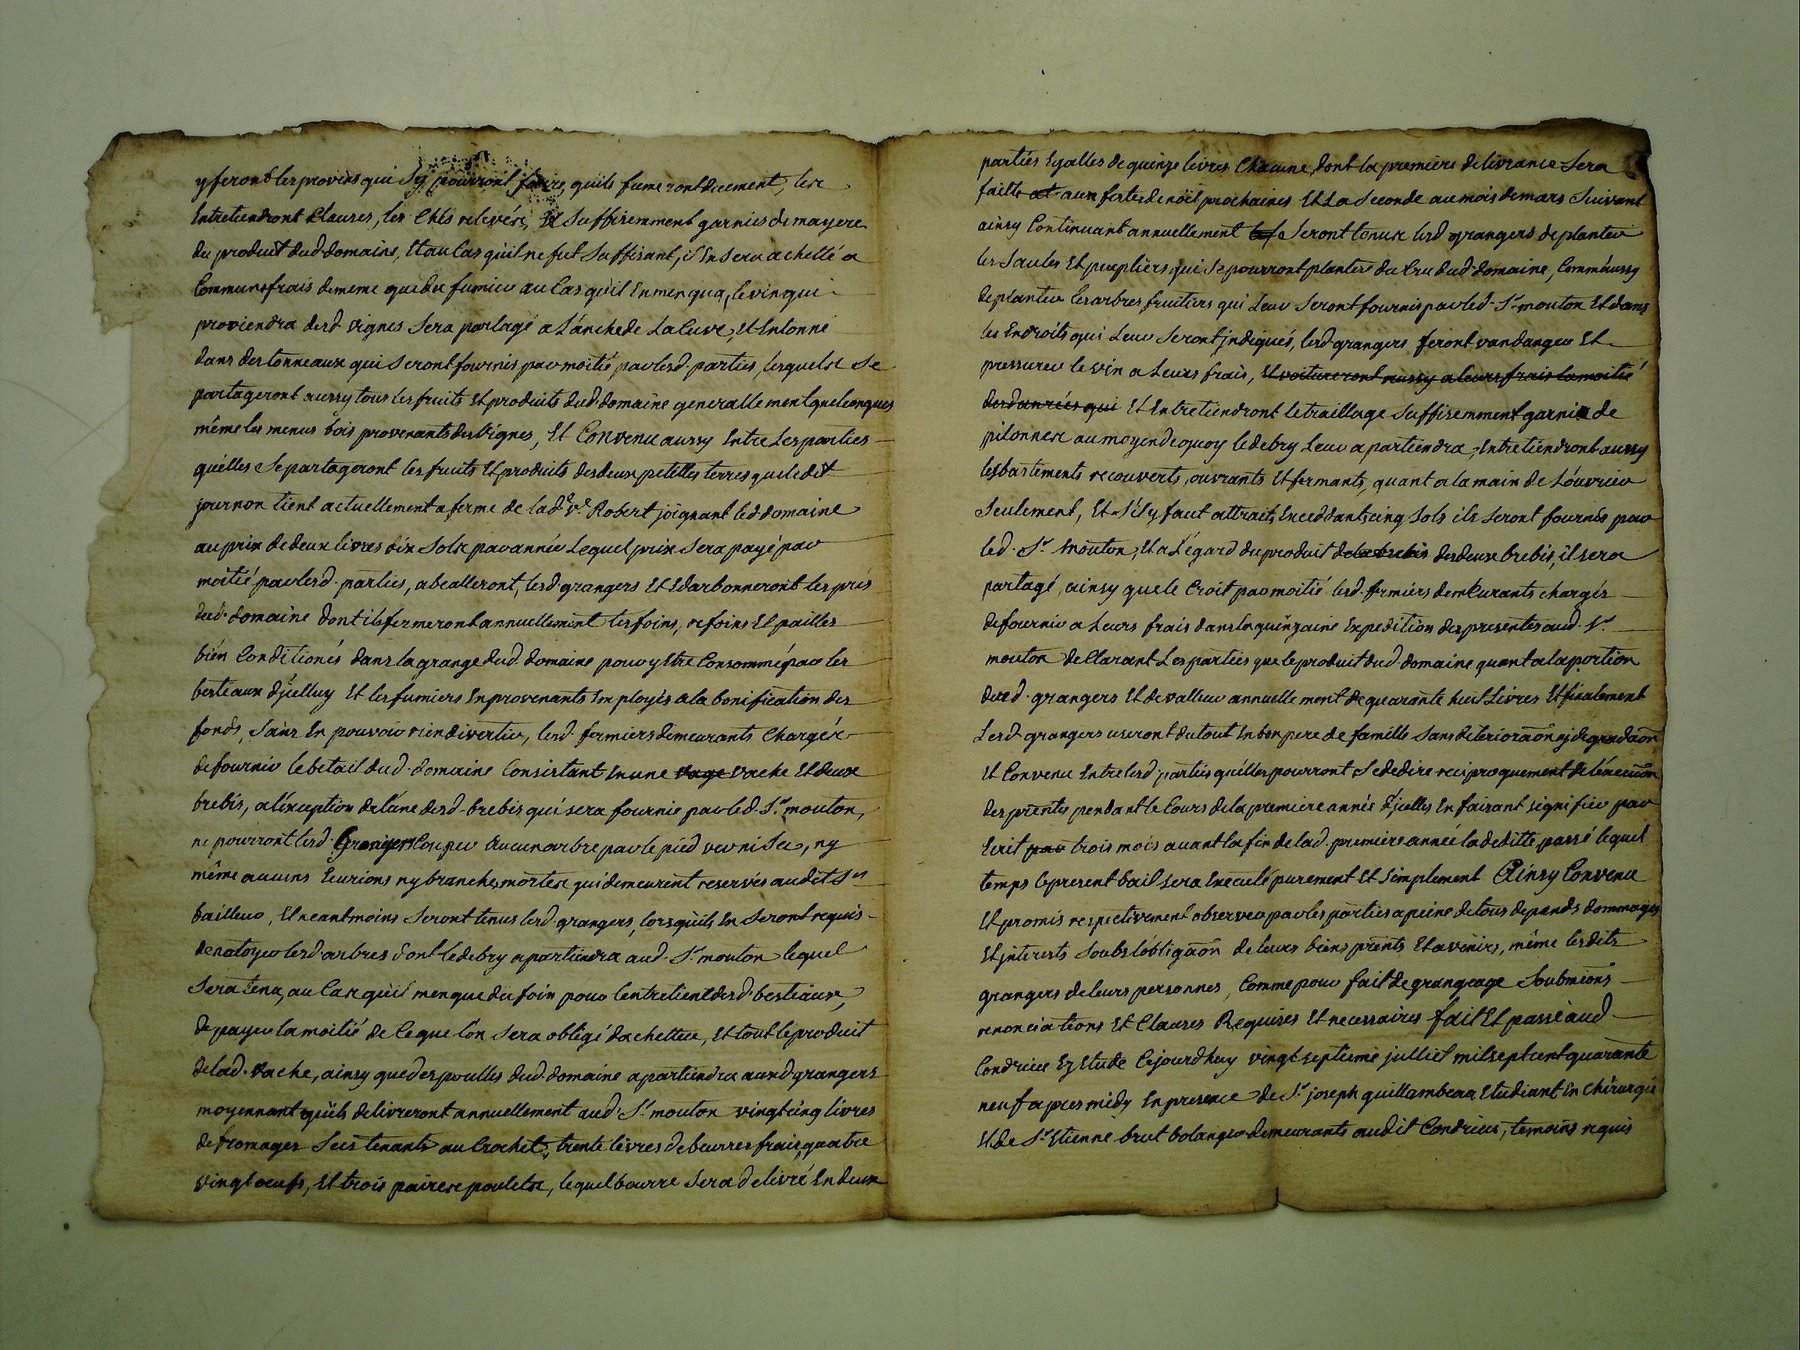 y feront les provins qui s'y pourront faire, quils fumeront duement, les
Entretiendront Clauses, les Chts relevés, Et suffisemment garnies de mayere
du produit dud. domaine, Et au Cas quil ne fut suffisant, il En sera achetté a
Communs frais de meme que du fumier au Cas qu'il En menqua, le vin qui
proviendra desd vignes sera partagé a L'anche de La Cuve, et Entonné
dans des tonneaux qui seront fournis par moitié par lesd. parties, lesquels se
partageront aussy tous les fruits Et produits dud domaine generallement quelconques
même les menus bois provenants des Vignes, Et Convenu aussy Entre Les parties
qu'elles se partageront les fruits Et produits des deux petittes terres que ledit
journon tient actuellement a ferme de lad. ve. Robert joignant led. domaine
au prix de deux livres dix sols par année Lequel prix sera payé par
moitié par lesd. parties, abealleront, lesd. grangers Et Edarbonneront les prés
dud. domaine dont ils fermeront annuellement les foins, refoins Et pailles
bien Conditionés dans la grange dud. domaine pour y Etre Consommé par les
bestiaux d'jcelluy Et les fumiers En provenants Employés a la bonification des
fonds, sans En pouvoir rien divertir, lesd. fermiers demeurants Chargés
de fournir le betail dud. domaine Consistant En une vage vache Et deux
brebis, a l'Exception de l'une desd. brebis qui sera fournie par led. Sr. mouton,
ne pourront lesd. Grangers Couper aucun arbre par le pied verni sec, ny
même aucuns Ecurions ny branches mortes qui demeurent reservés audit Sr.
bailleur, Et neantmoins seront tenus lesd. grangers, lorsqu'ils En seront requis
de natoyer lesd. arbres dont le debry apartiendra aud. Sr. mouton lequel
sera tenu, au Cas qu'il menque du foin pour l'entretient desd. bestiaux,
de payer la moitié de Ce que l'on sera obligé d'achetter, Et tout le produit
de lad. vache, ainsy que des poulles dud. domaine apartiendra auxd. grangers
moyennant quils delivreront annuellement aud. Sr. mouton vingt cinq livres
de fromages secs tenants au Crochet, trente livres de beurres frais, quatre
vingt oeufs, Et trois paires poulets, lequel beurre sera delivré En deux
parties Egalles de quinze livres Chacune, dont la premiere delivrance sera
faitte at aux festes de noël prochaines Et La seconde au mois de mars suivant
ainsy Continuant annuellement seront tenus lesd grangers de planter
les saules Et peupliers qui se pourront planter du Cru dud. domaine, Comm'aussy
de planter les arbres fruitiers qui Leur seront fournis par led. Sr. mouton Et dans
les Endroits qui Leur seront jndiqués, lesd grangers feront vandanger Et
pressurer le vin a Leurs frais, Et voitureront aussy a leurs frais la moitié
desd. danrées qui Et Entretiendront le traillage suffisemment garni de
pilonnes au moyen de quoy le debry Leur apartiendra, Entretiendront aussy
les bastiments recouverts, ouvrants Et fermants, quant a la main de L'ouvrier
seulement, Et s'il y faut attraits Excedants cinq sols ils seront fournis par
led. Sr. mouton, Et a L'égard du produit de la brebis des deux brebis, il sera
partagé, ainsy que le Croit par moitié lesd. fermiers demeurants chargés
de fournir a Leurs frais dans la quinzaine Expedition des presentes aud. Sr.
mouton declarant Les parties que le produit dud. domaine quant a la portion
desd. grangers Et de valleur annuellement de quarante huit Livres Et finalement
Lesd. grangers useront du tout En bon pere de famille sans deteriora͠on nj degrada͠on
Et Convenu Entre lesd. parties qu'elles pourront se dedire reciproquement de l'execu͠on
des pr͠entes pendant le Cours de la premiere année d'jcelles En faisant signifier par
Ecrit par trois mois avant la fin de lad. premiere année la deditte, passé lequel
temps le present bail sera Executé purement Et simplement Ainsy Convenu
Et promis respectivement observer par les parties a peine de tous depends dommages
Et jnterests soubs l'obliga͠on de leurs biens pr͠ents Et avenirs, même lesdits
grangers de leurs personnes, Comme pour fait de grangeage soubmi͠ons
renonciations Et Clauses Requises Et necessaires fait Et passé aud
Condrieu Ez Etude Cejourdhuy vingt septieme julliet mil sept cent quarante
neuf apres midy En presence de Sr. joseph guillambeau Etudiant En chirurgie
Et de Sr. Etienne brut bolanger demeurants audit Condrieu, temoins requis